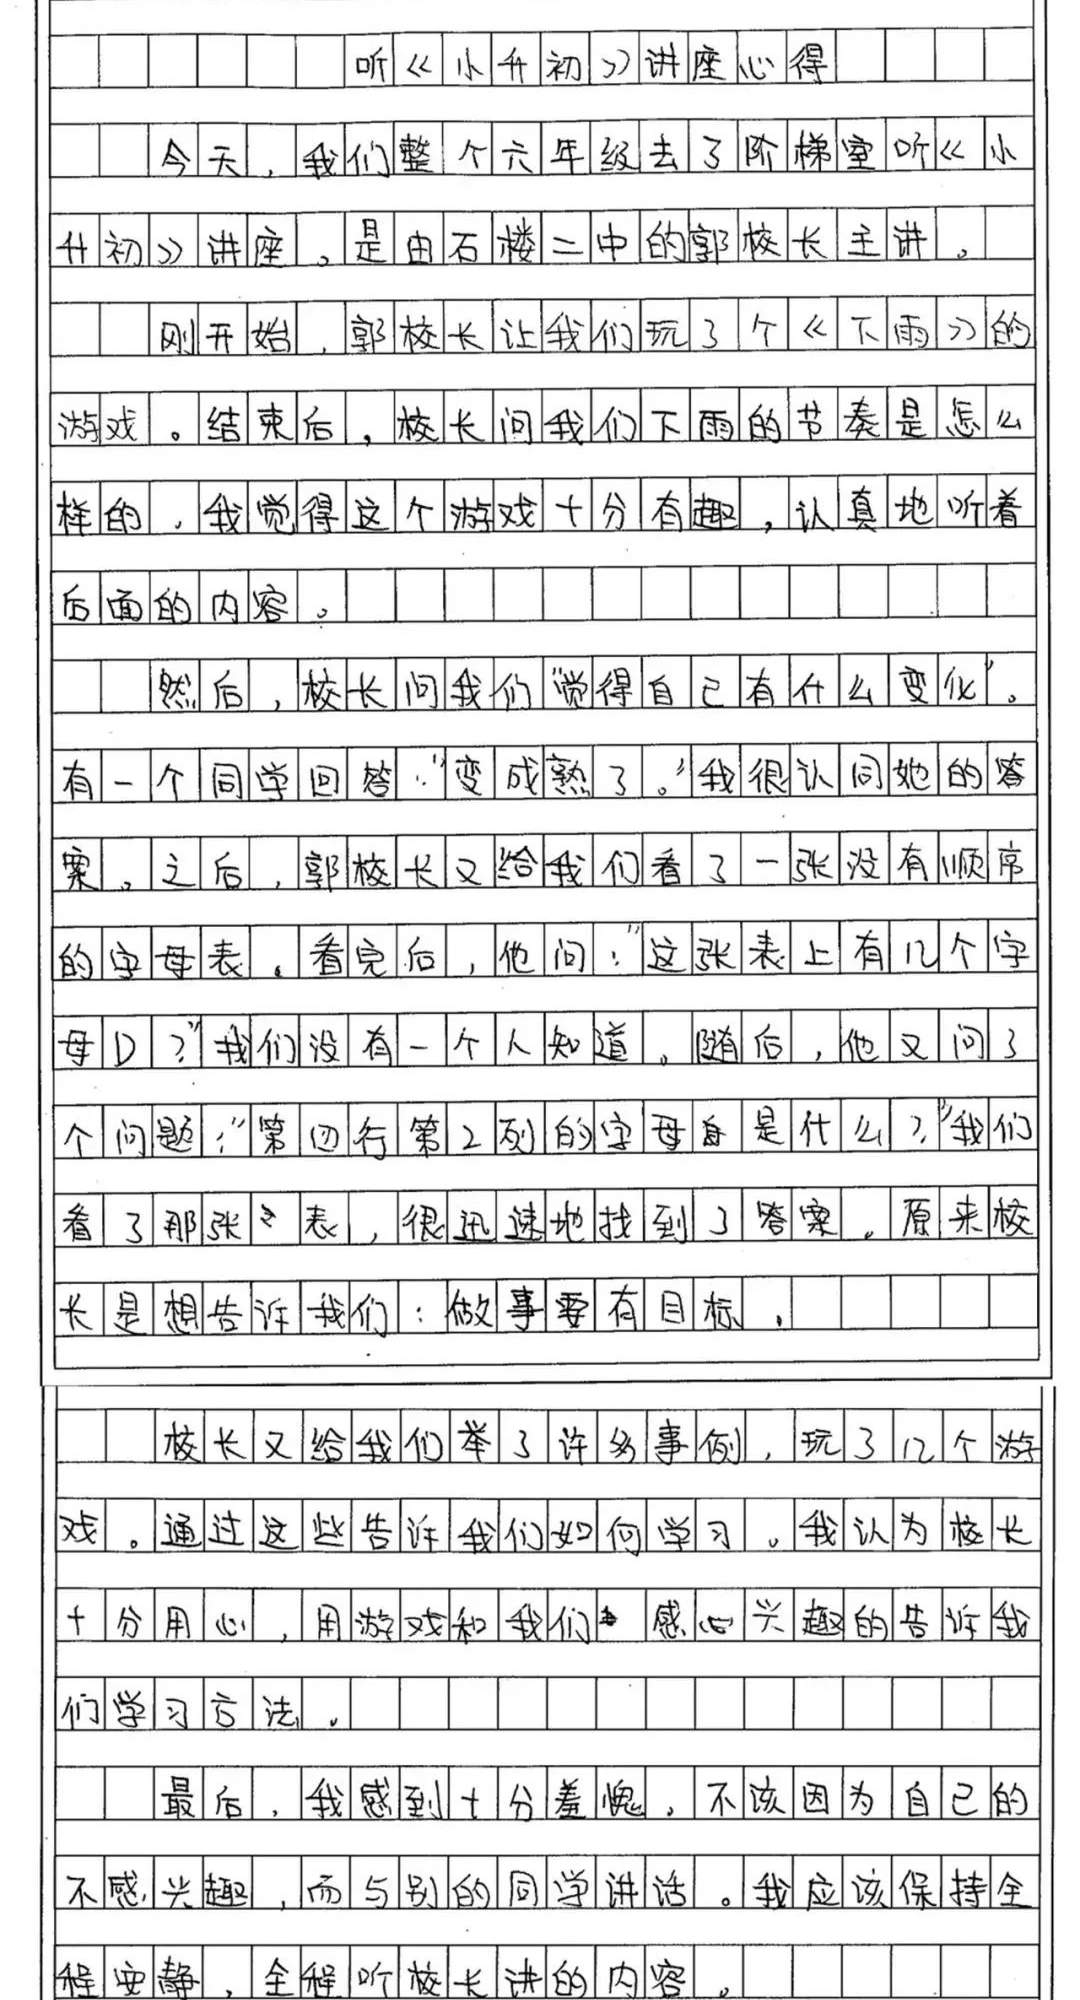 听《小升初》讲座心得
今天，我们整个六年级去了阶梯室听《小
升初》讲座。是由石楼二中的郭校长主讲。
刚开始，郭校长让我们玩了个《下雨》的
游戏。结束后，校长问我们下雨的节奏是怎么
样的，我觉得这个游戏十分有趣，认真地听着
后面的内容。
然后，校长问我们“觉得自己有什么变化”。
有一个同学回答：“变成熟了。”我很认同她的答
案。之后，郭校长又给我们看了一张没有顺序
的字母表。看完后，他问：“这张表上有几个字
母D？”我们没有一个人知道。随后，他又问了
个问题：“第四行第2列的字母是什么？”我们
看了那张表，很迅速地找到了答案。原来校
长是想告诉我们：做事要有目标。
校长又给我们举了许多事例，玩了几个游
戏。通过这些告诉我们如何学习。我认为校长
十分用心，用游戏和我们感兴趣的告诉我
们学习方法。
最后，我感到十分羞愧，不该因为自己的
不感兴趣，而与别的同学讲话。我应该保持全
程安静，全程听校长讲的内容。